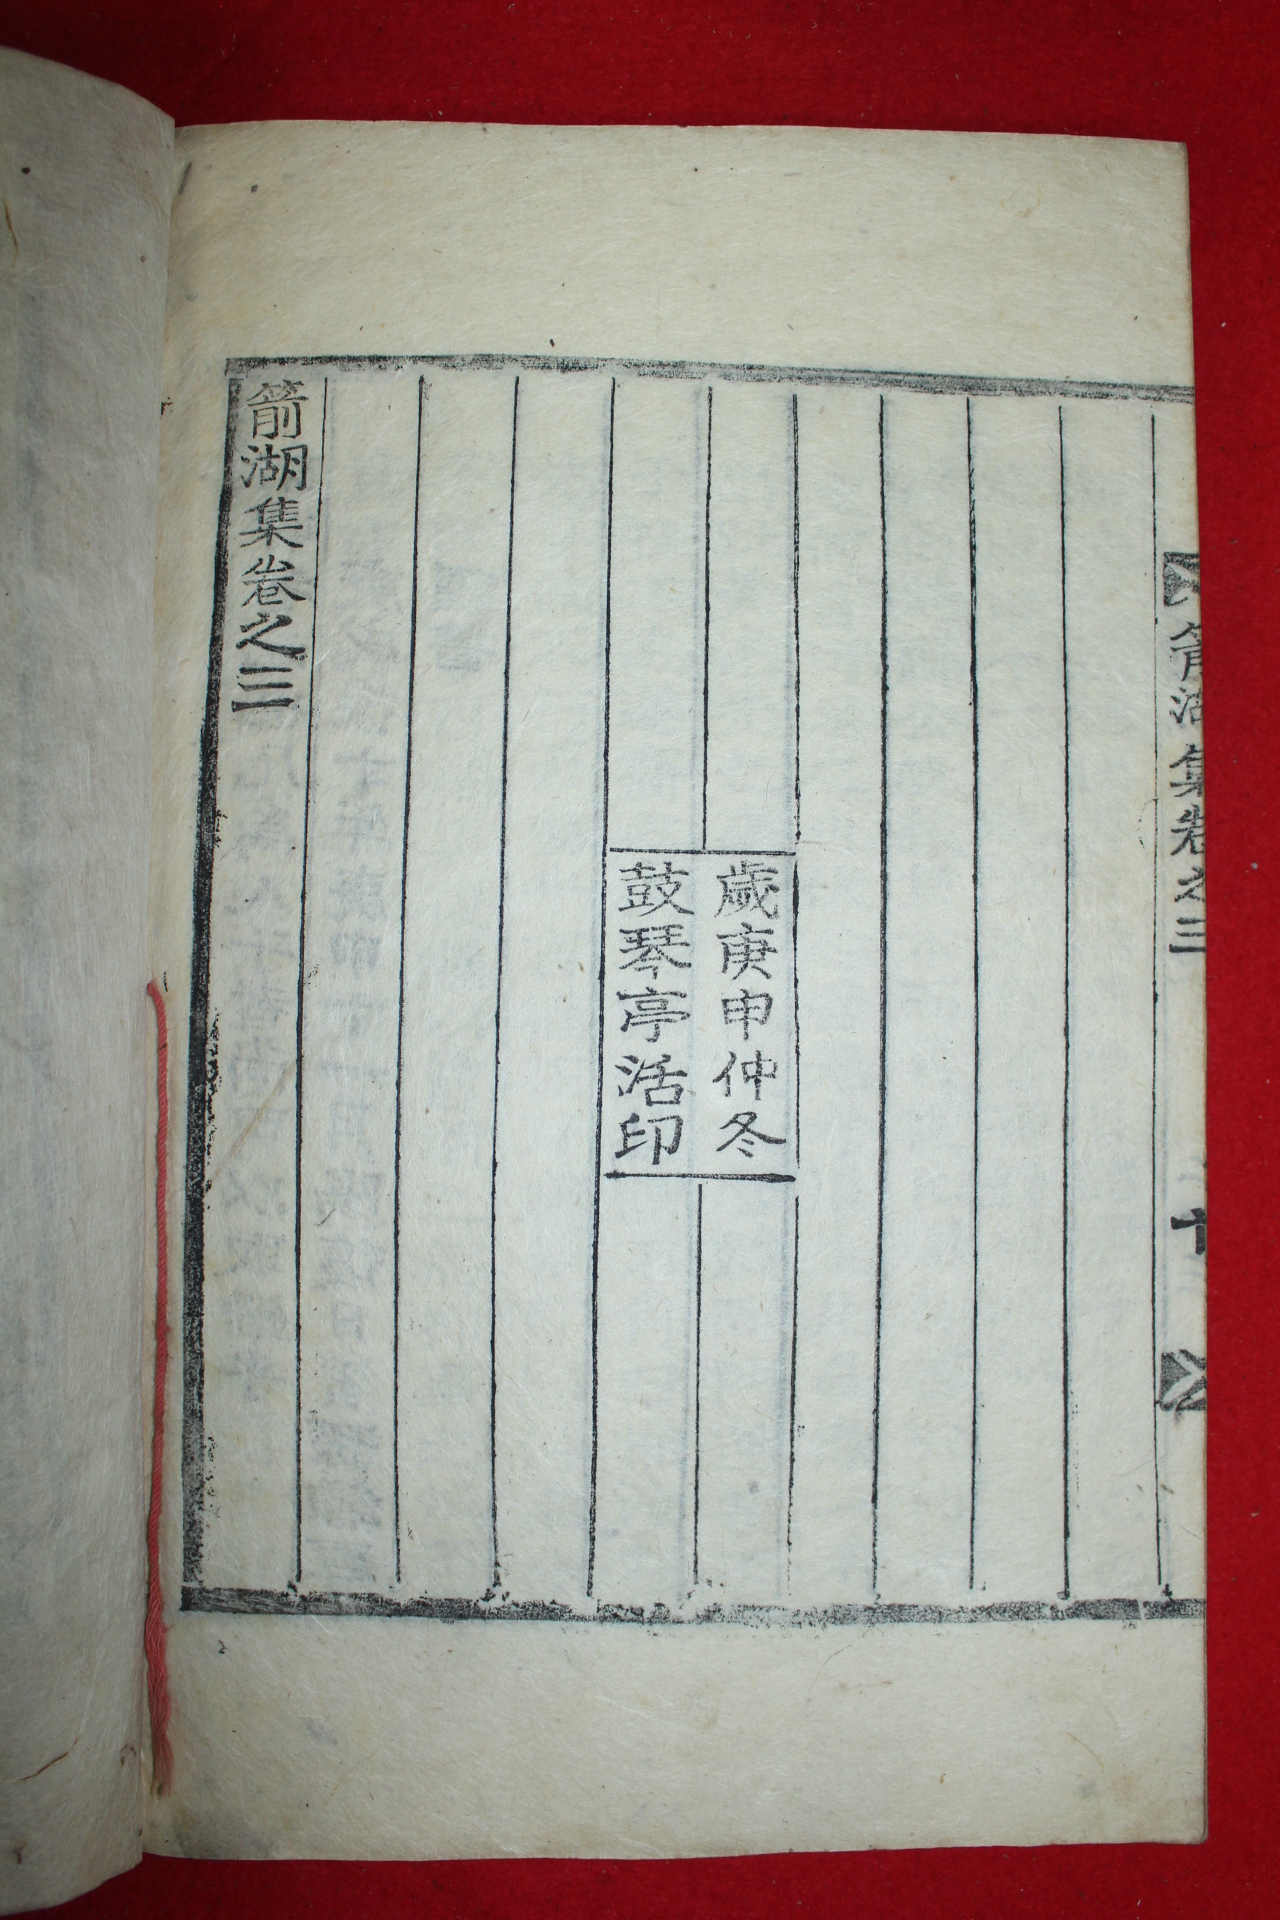 箭湖集卷之三
歲庚申仲冬
鼓琴亭活印
箭湖集卷之三